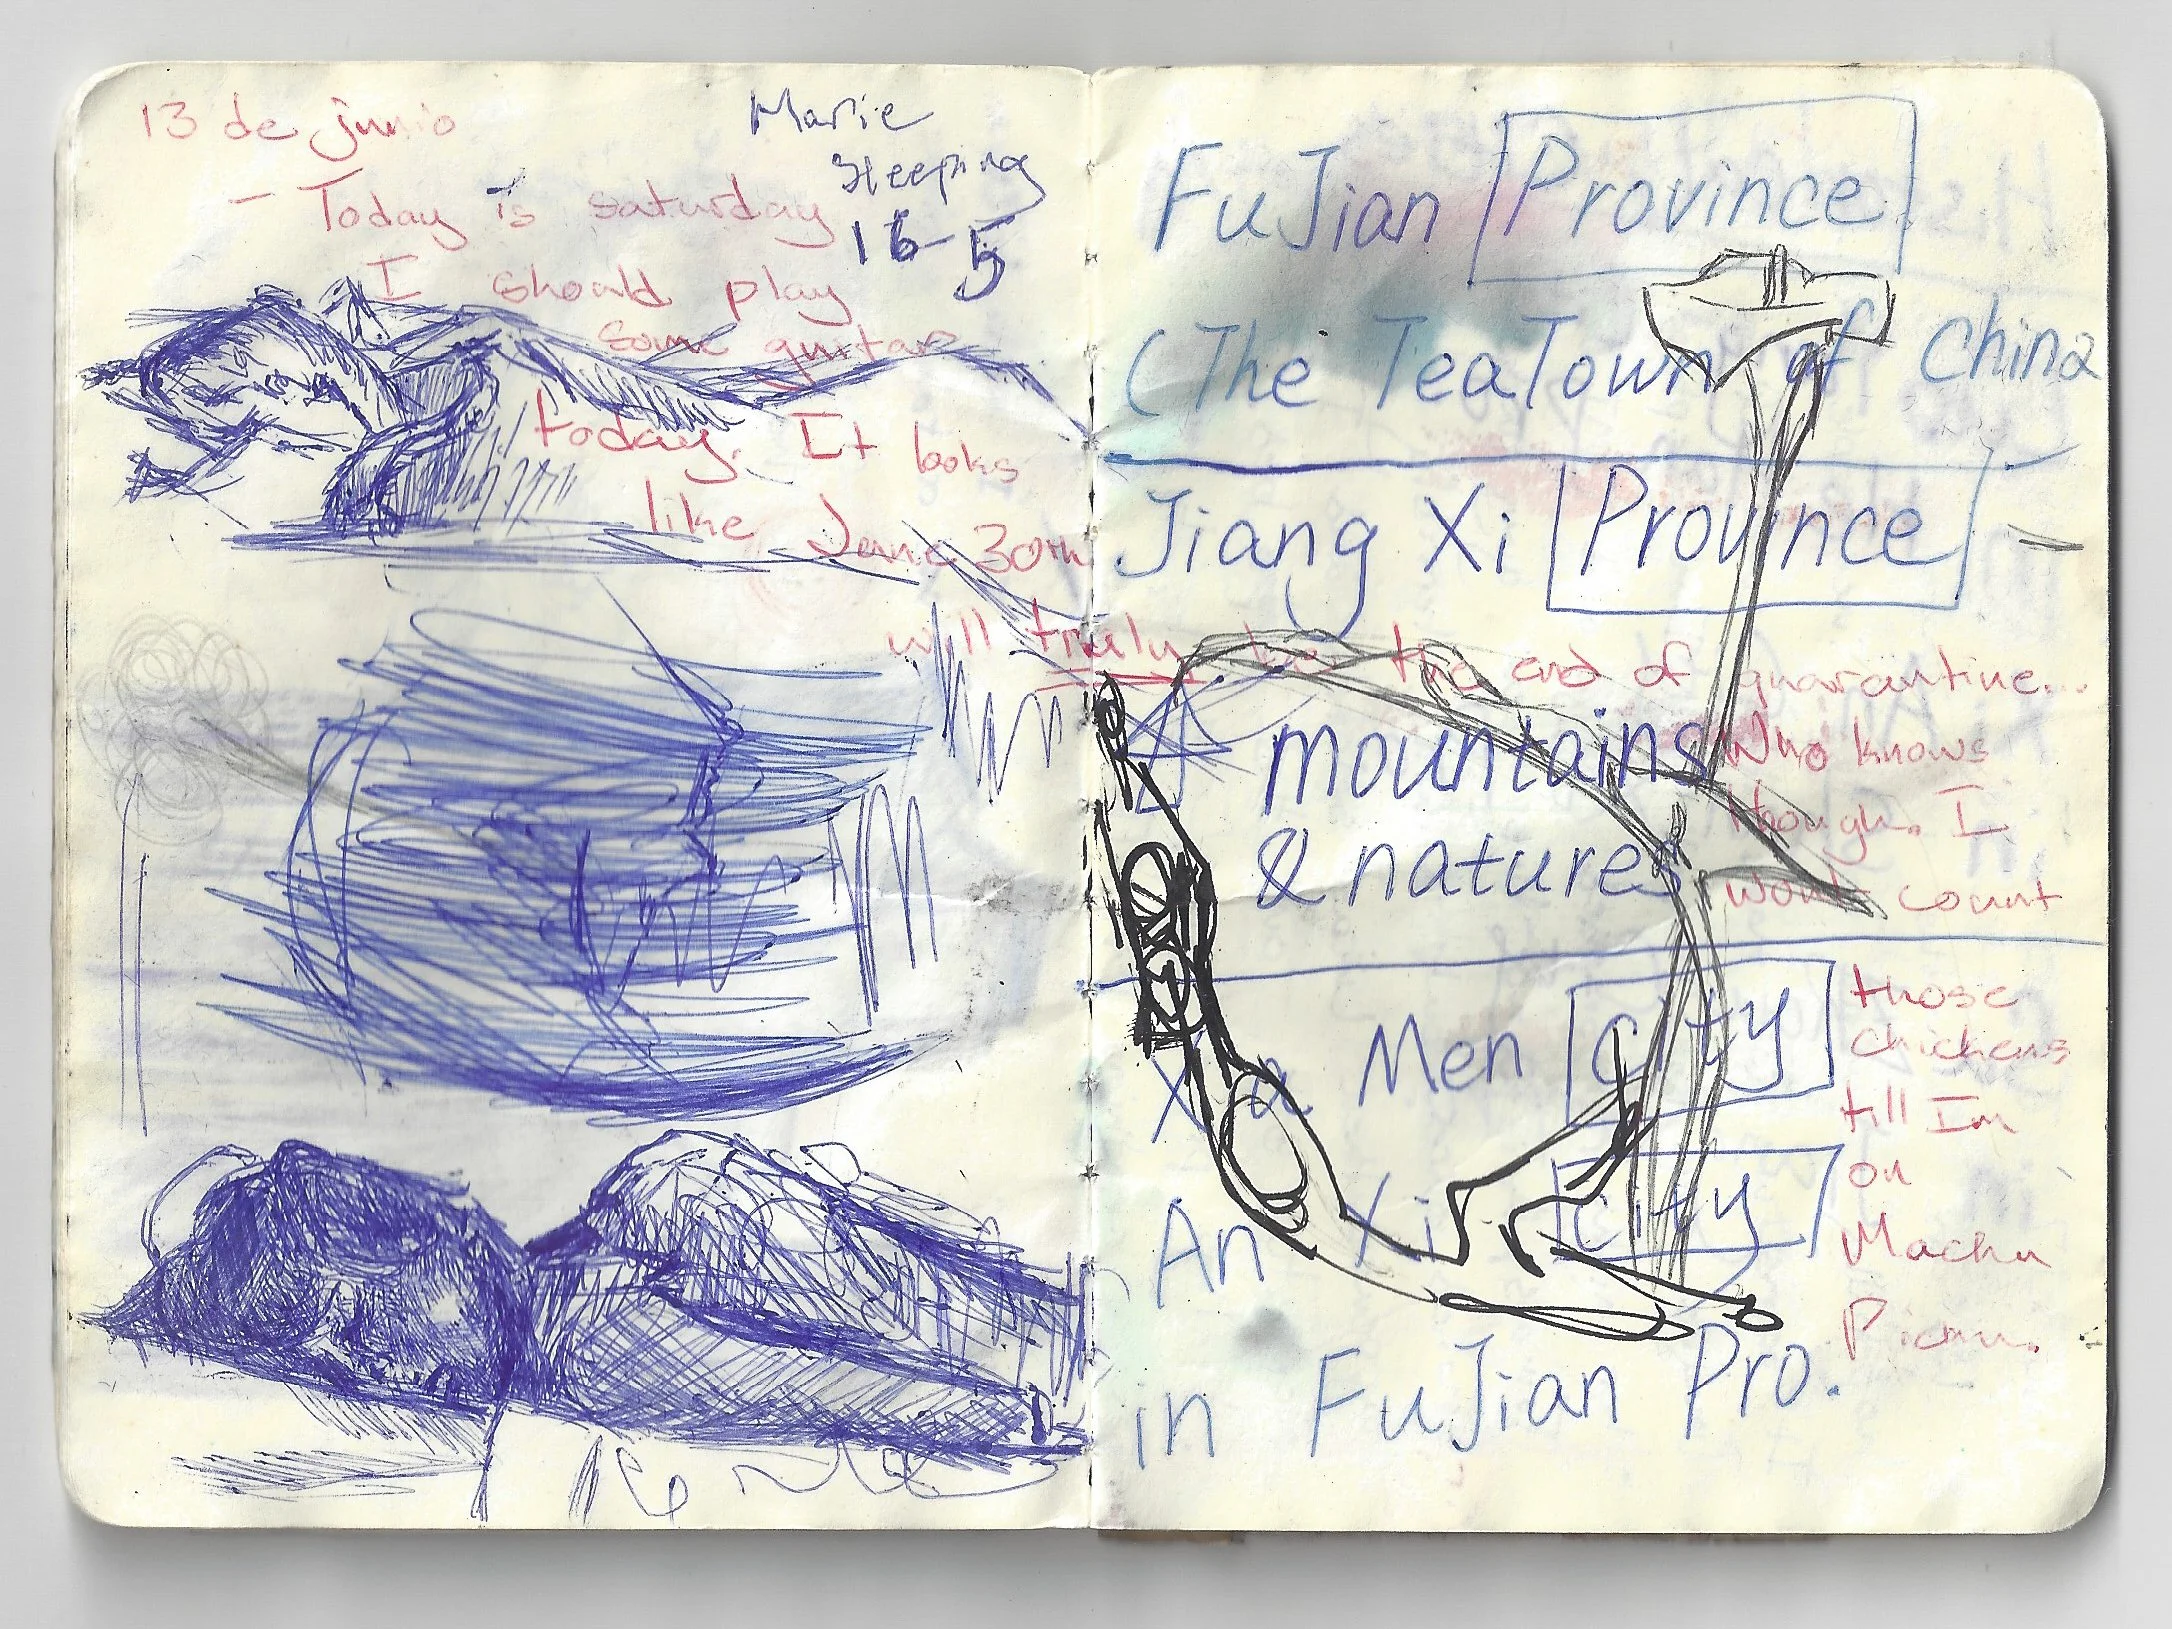 13 de junio
- Today is saturday
I should play
some guitar
today. It looks
like June 30th
will truly be the end of quarantine...
Who knows
though. I
wont count
those
chickens
till Im
on
Machu
Picnu.
Marie
Sleeping
16-5
FuJian Province
(The TeaTown of China
Jiang Xi Province
mountains
& natures
Xia Men City
An Xi City
in FuJian Pro.